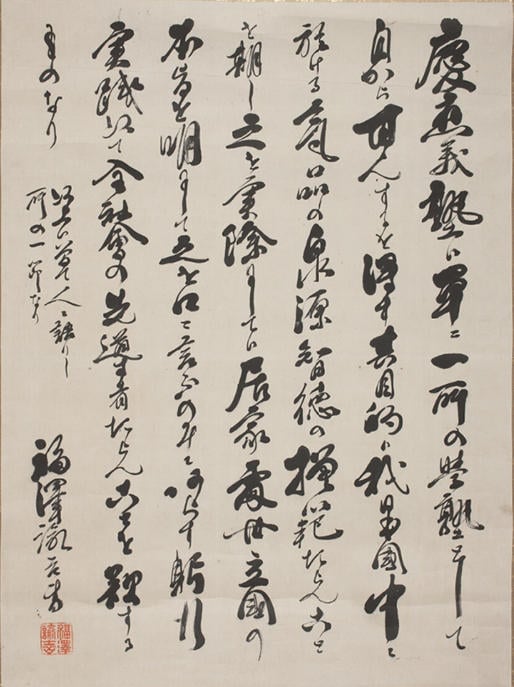 慶應義塾ハ單ニ一所の学塾として
自から甘んするを得す其目的ハ我日本國中ニ
於ける氣品の泉源智徳の模範たらんこと
を期し之を實際にしてハ居家處世立國の
本旨を明にして之を口ニ言ふのみニあらす躬行
実踐以て全社會の先導者たらんことを欲する
ものなり
以上ハ曾て人ニ語りし
所の一節なり
福澤諭吉書
福澤諭吉